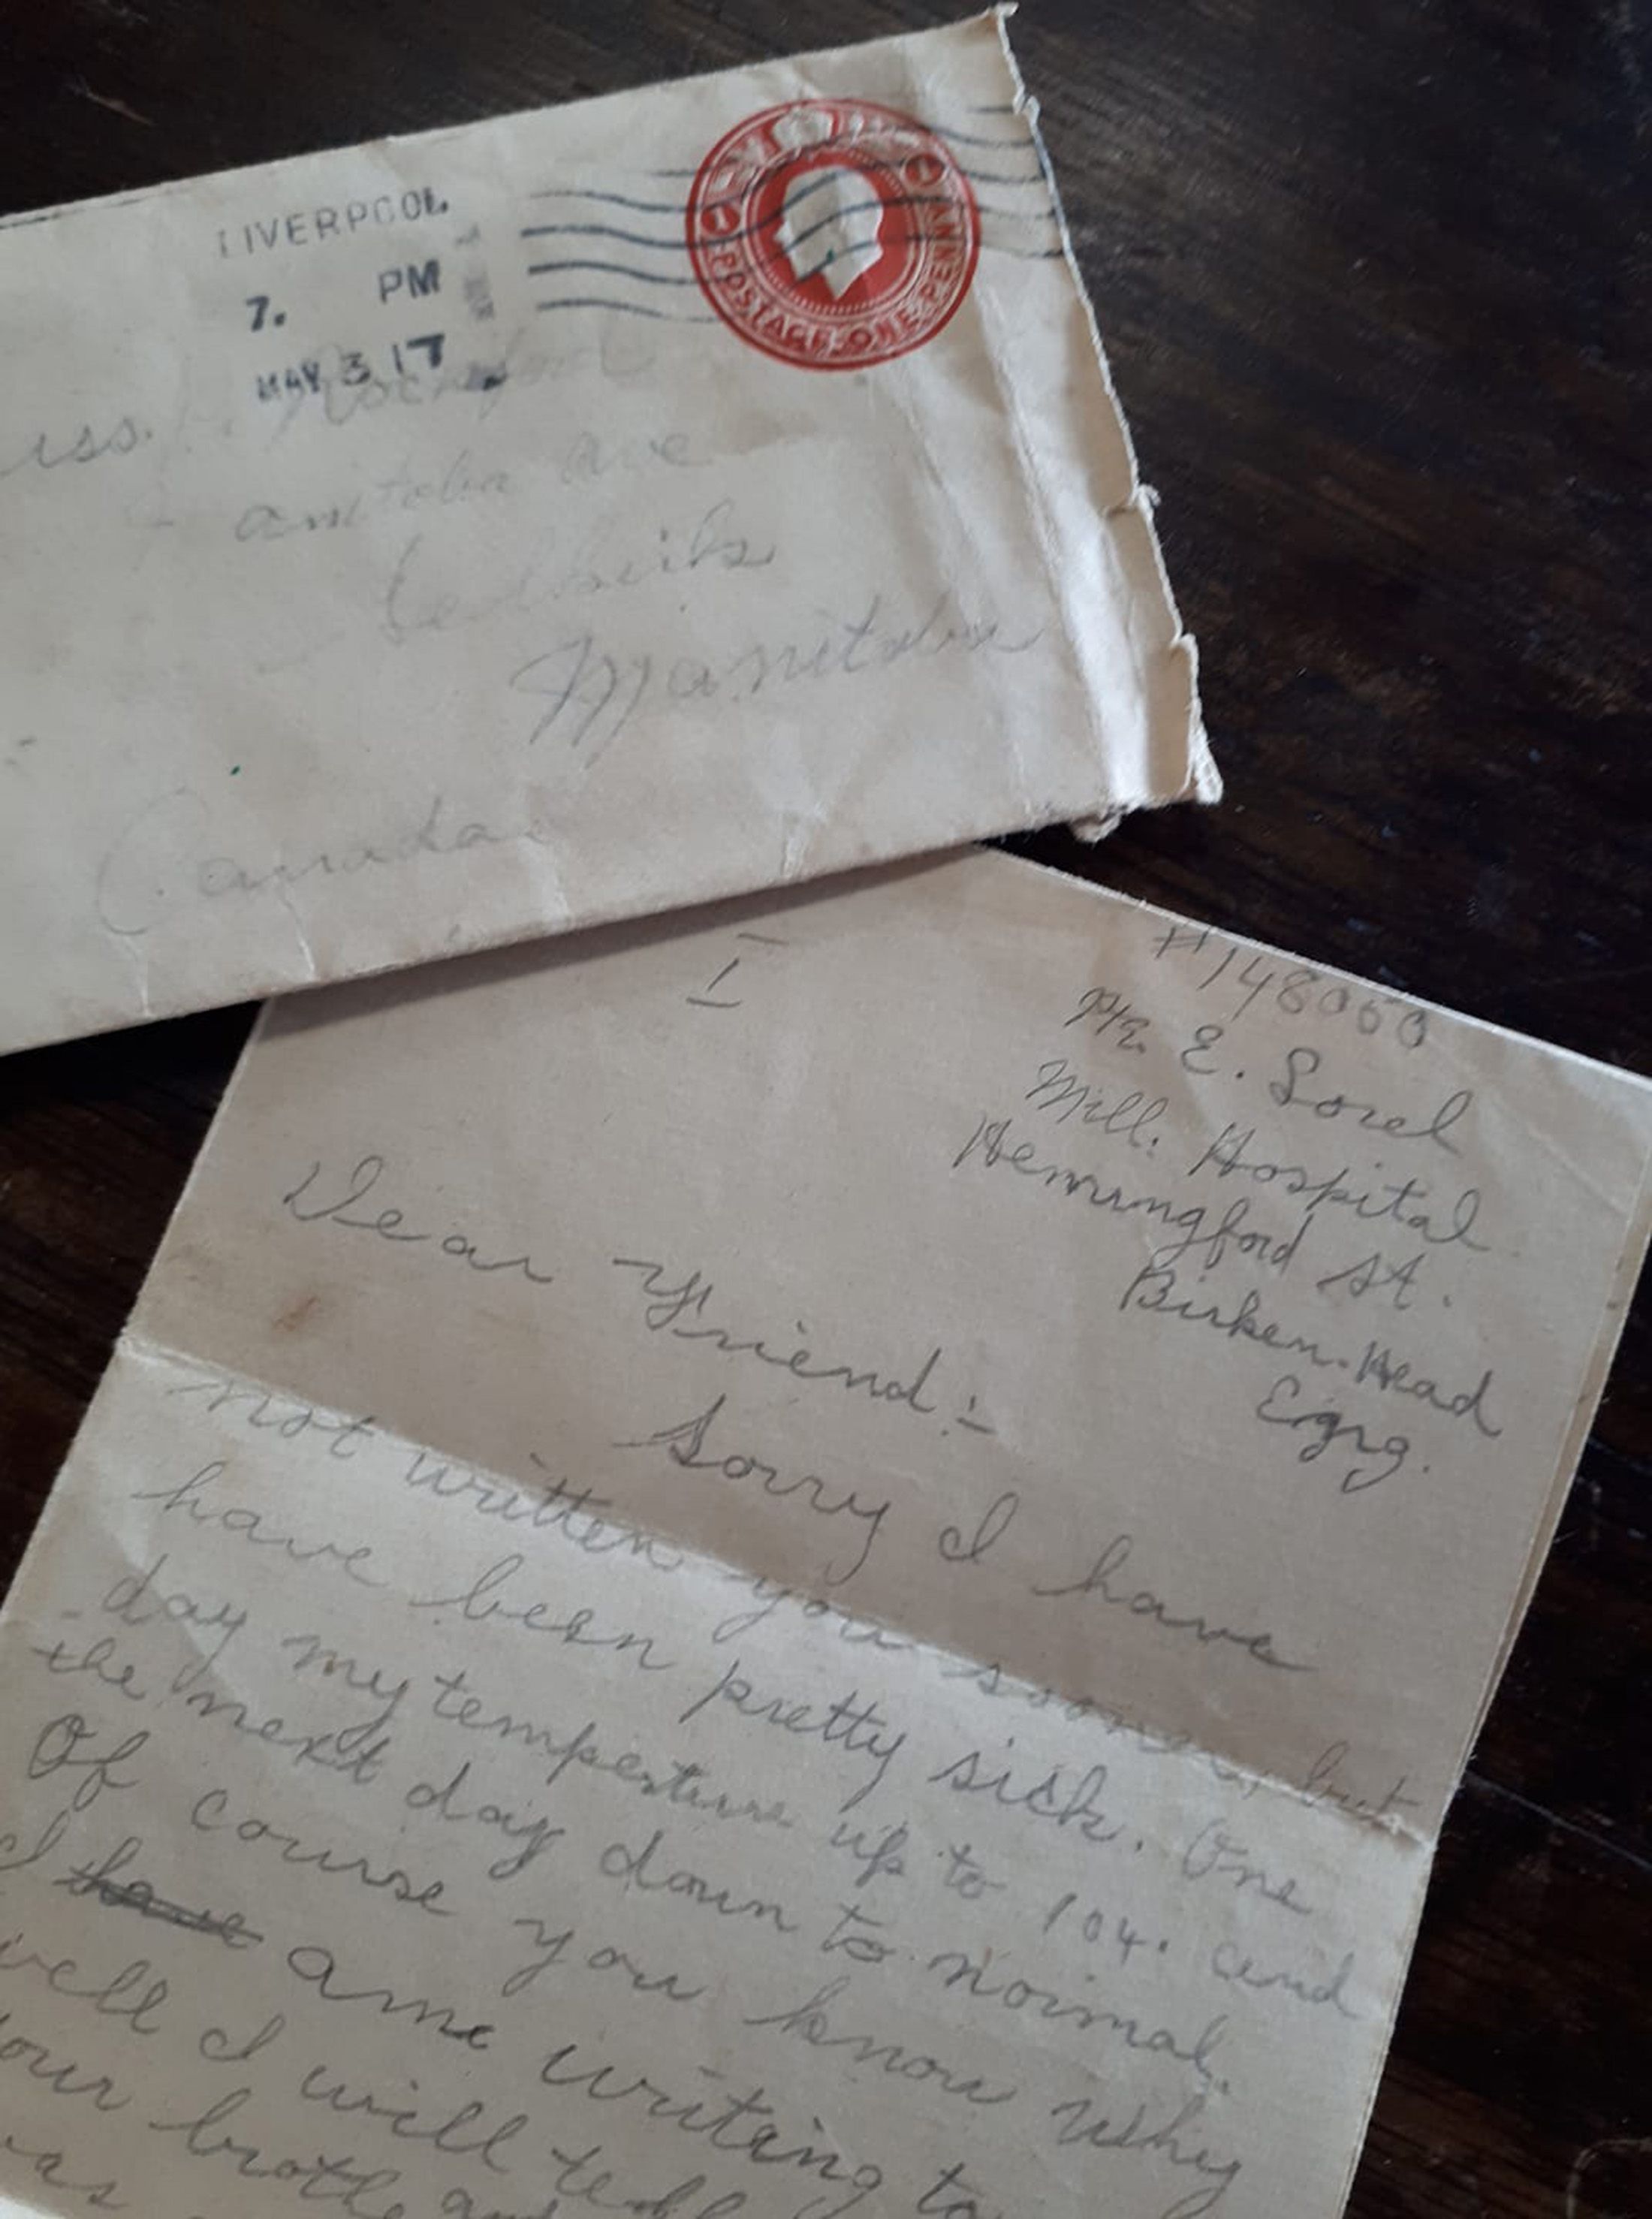 LIVERPOOL
7. PM
MAY 3 17
POSTAGE ONE PENNY
1
1
ave
Manitoba
Canada
I
Pte. E. Sorel
Mill. Hospital
Hemingford St.
Birken-Head
Eng.
Dear Friend:-
Sorry I have
not written you sooner, but
have been pretty sick. One
day my temperture up to 104. and
the next day down to normal.
Of course you know why
I have ame writing to
well I will tell
your brothe
as